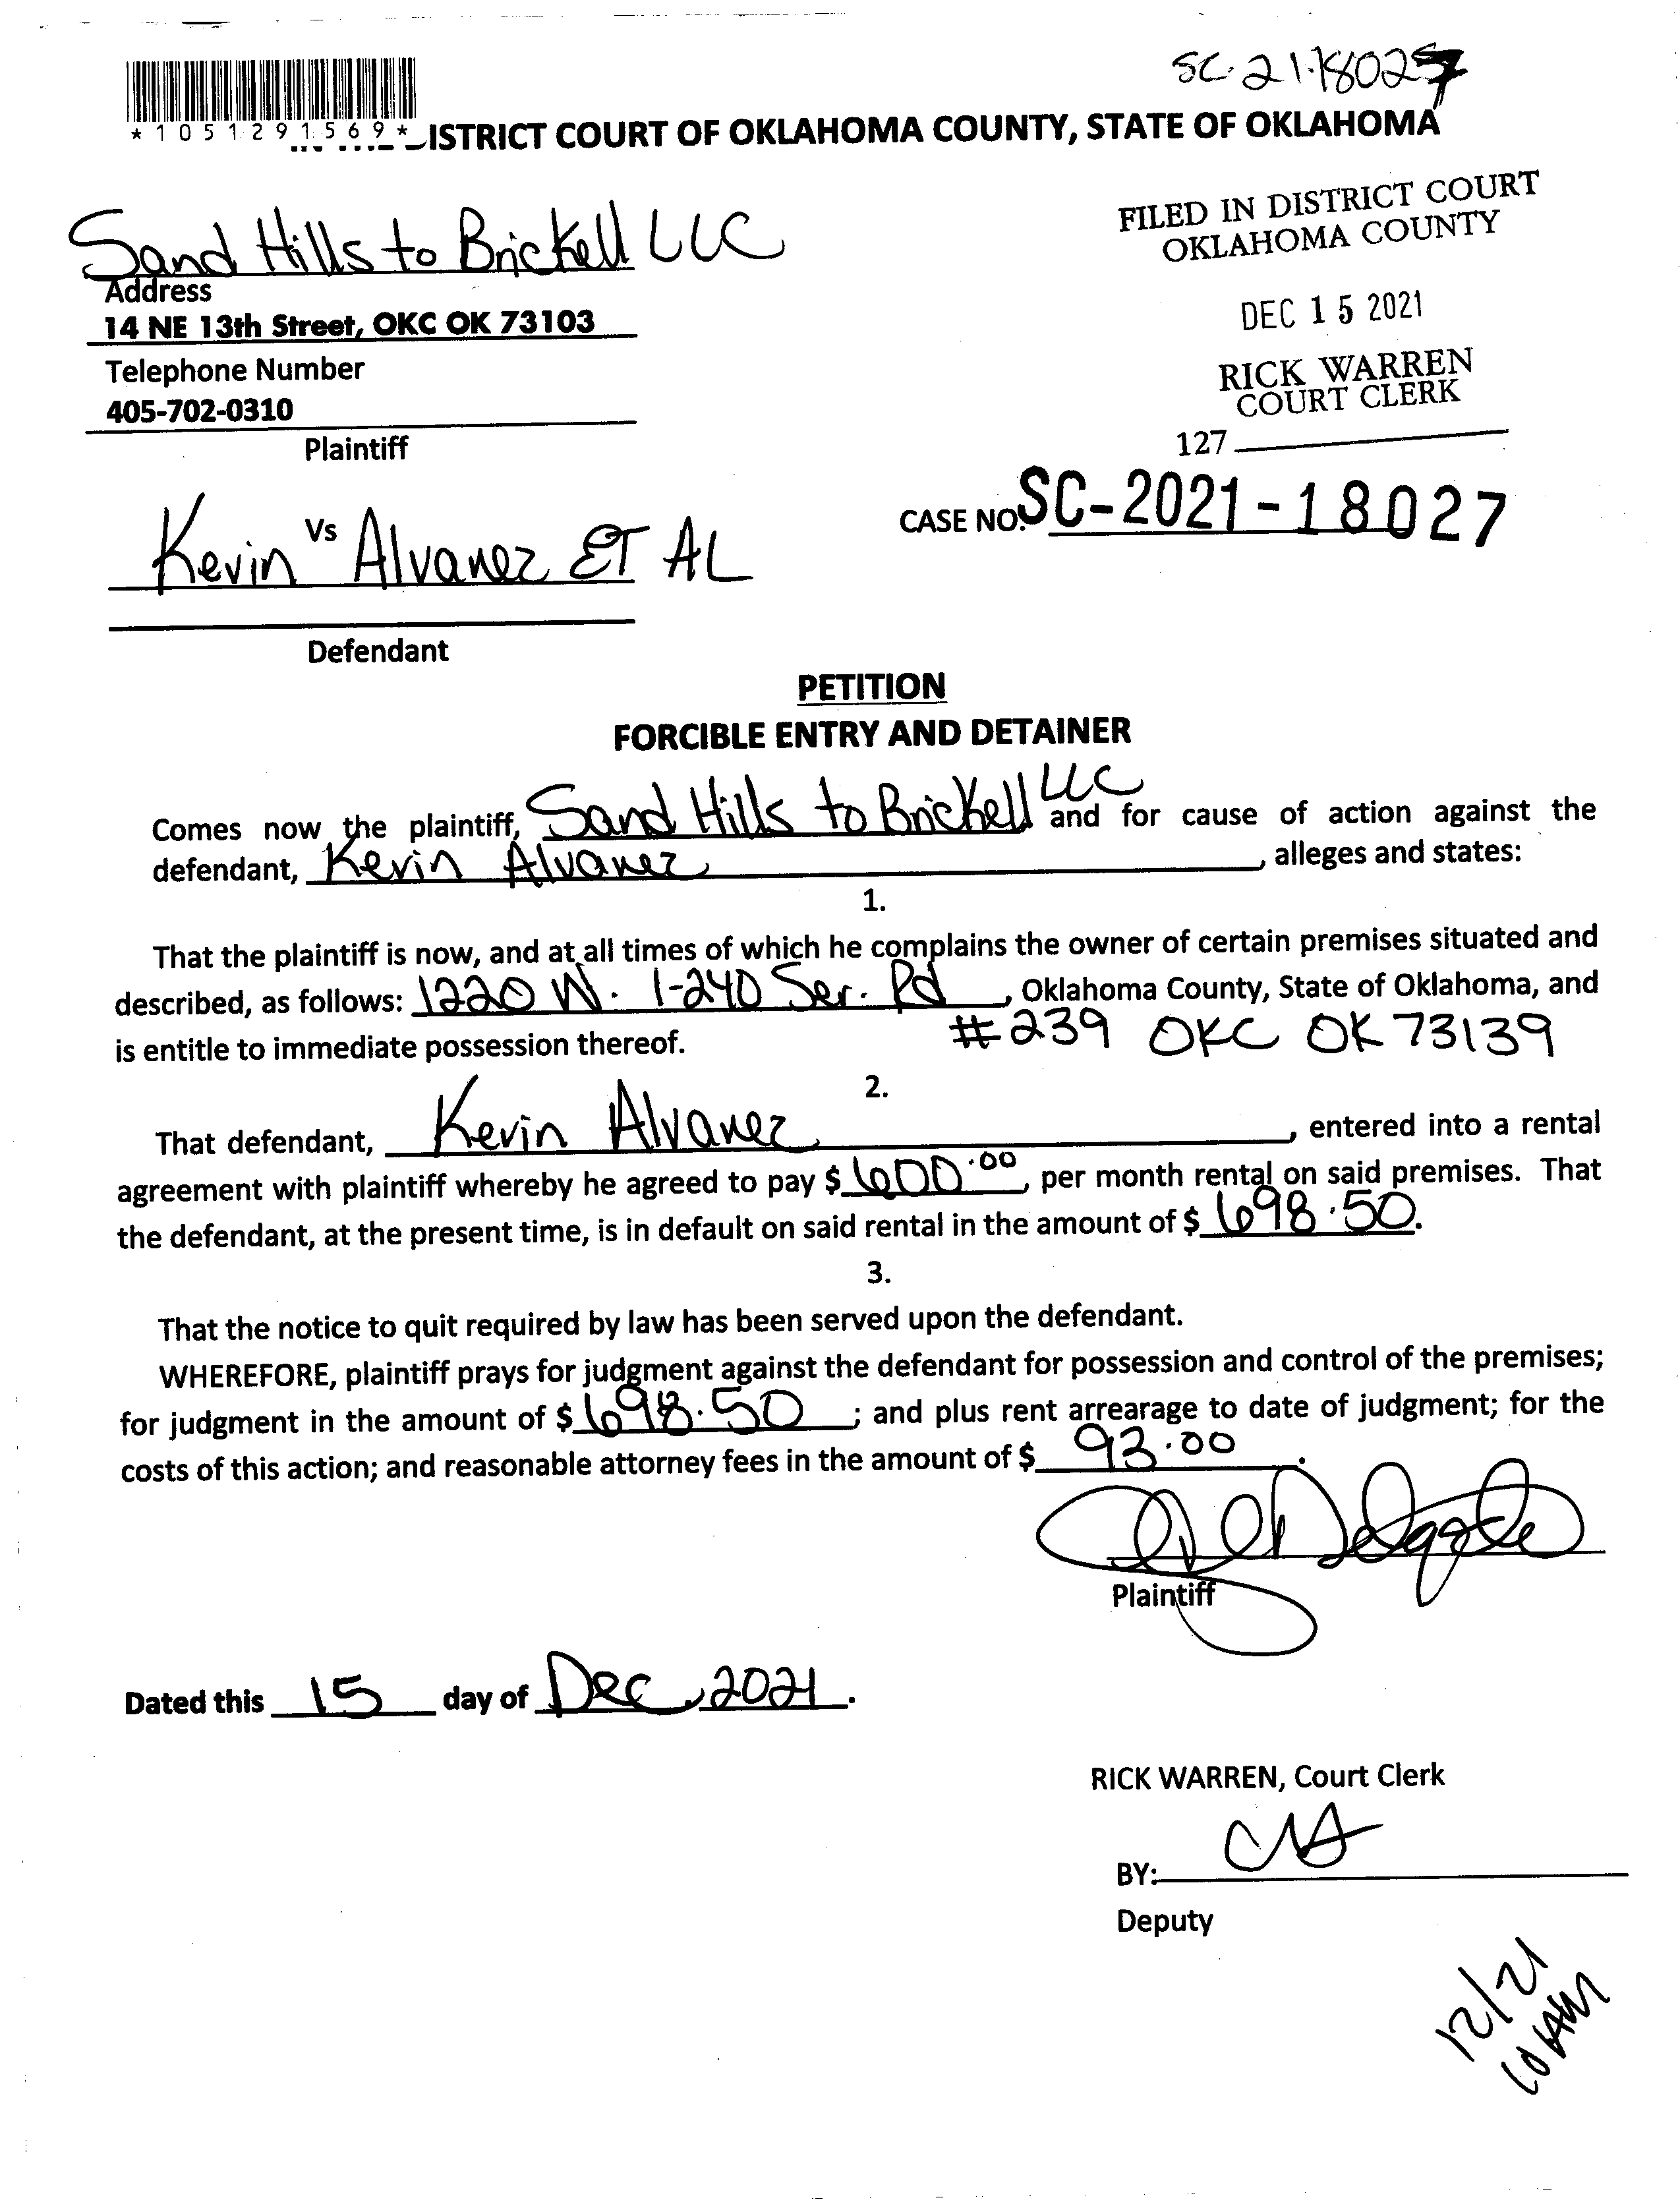 SC-21-18027
*1051291569* ISTRICT COURT OF OKLAHOMA COUNTY, STATE OF OKLAHOMA
FILED IN DISTRICT COURT
OKLAHOMA COUNTY
DEC 15 2021
RICK WARREN
COURT CLERK
127
Sand Hills to Brickell LLC
Address
14 NE 13th Street, OKC OK 73103
Telephone Number
405-702-0310
Plaintiff
Vs
CASE NO. SC-2021-18027
Kevin Alvarez ET AL
Defendant
PETITION
FORCIBLE ENTRY AND DETAINER
Comes now the plaintiff, Sand Hills to Brickell LLC and for cause of action against the
defendant, Kevin Alvarez, alleges and states:
1.
That the plaintiff is now, and at all times of which he complains the owner of certain premises situated and
described, as follows: 1220 W. I-240 Ser. Rd, Oklahoma County, State of Oklahoma, and
#239 OKC OK 73139
is entitle to immediate possession thereof.
2.
That defendant, Kevin Alvarez, entered into a rental
agreement with plaintiff whereby he agreed to pay $ 600.00, per month rental on said premises. That
the defendant, at the present time, is in default on said rental in the amount of $ 698.50.
3.
That the notice to quit required by law has been served upon the defendant.
WHEREFORE, plaintiff prays for judgment against the defendant for possession and control of the premises;
for judgment in the amount of $ 698.50; and plus rent arrearage to date of judgment; for the
costs of this action; and reasonable attorney fees in the amount of $ 93.00.
Delgado
Plaintiff
Dated this 15 day of Dec, 2021.
RICK WARREN, Court Clerk
BY:
Deputy
12/21
10 AM